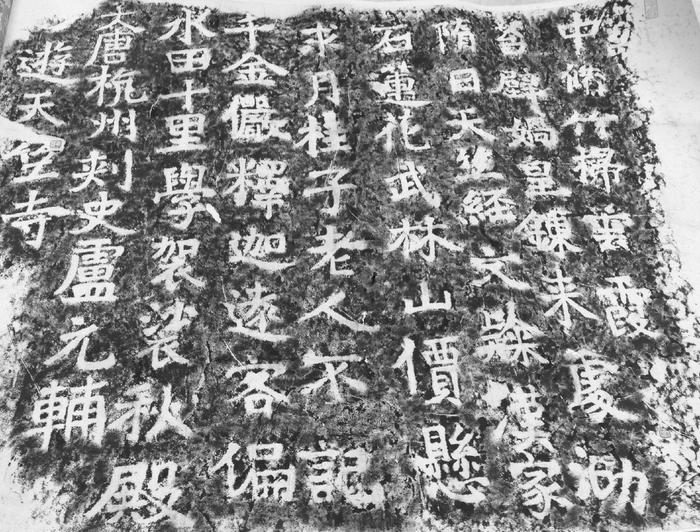 遊天竺寺
大唐杭州刺史盧元輔
水田十里學袈裟秋殿
千金儼釋迦遠客偏
求月桂子老人不記
石蓮花武林山價懸
隋日天竺經文隸漢家
苔壁媧皇鍊未處
中脩竹掃雲霞